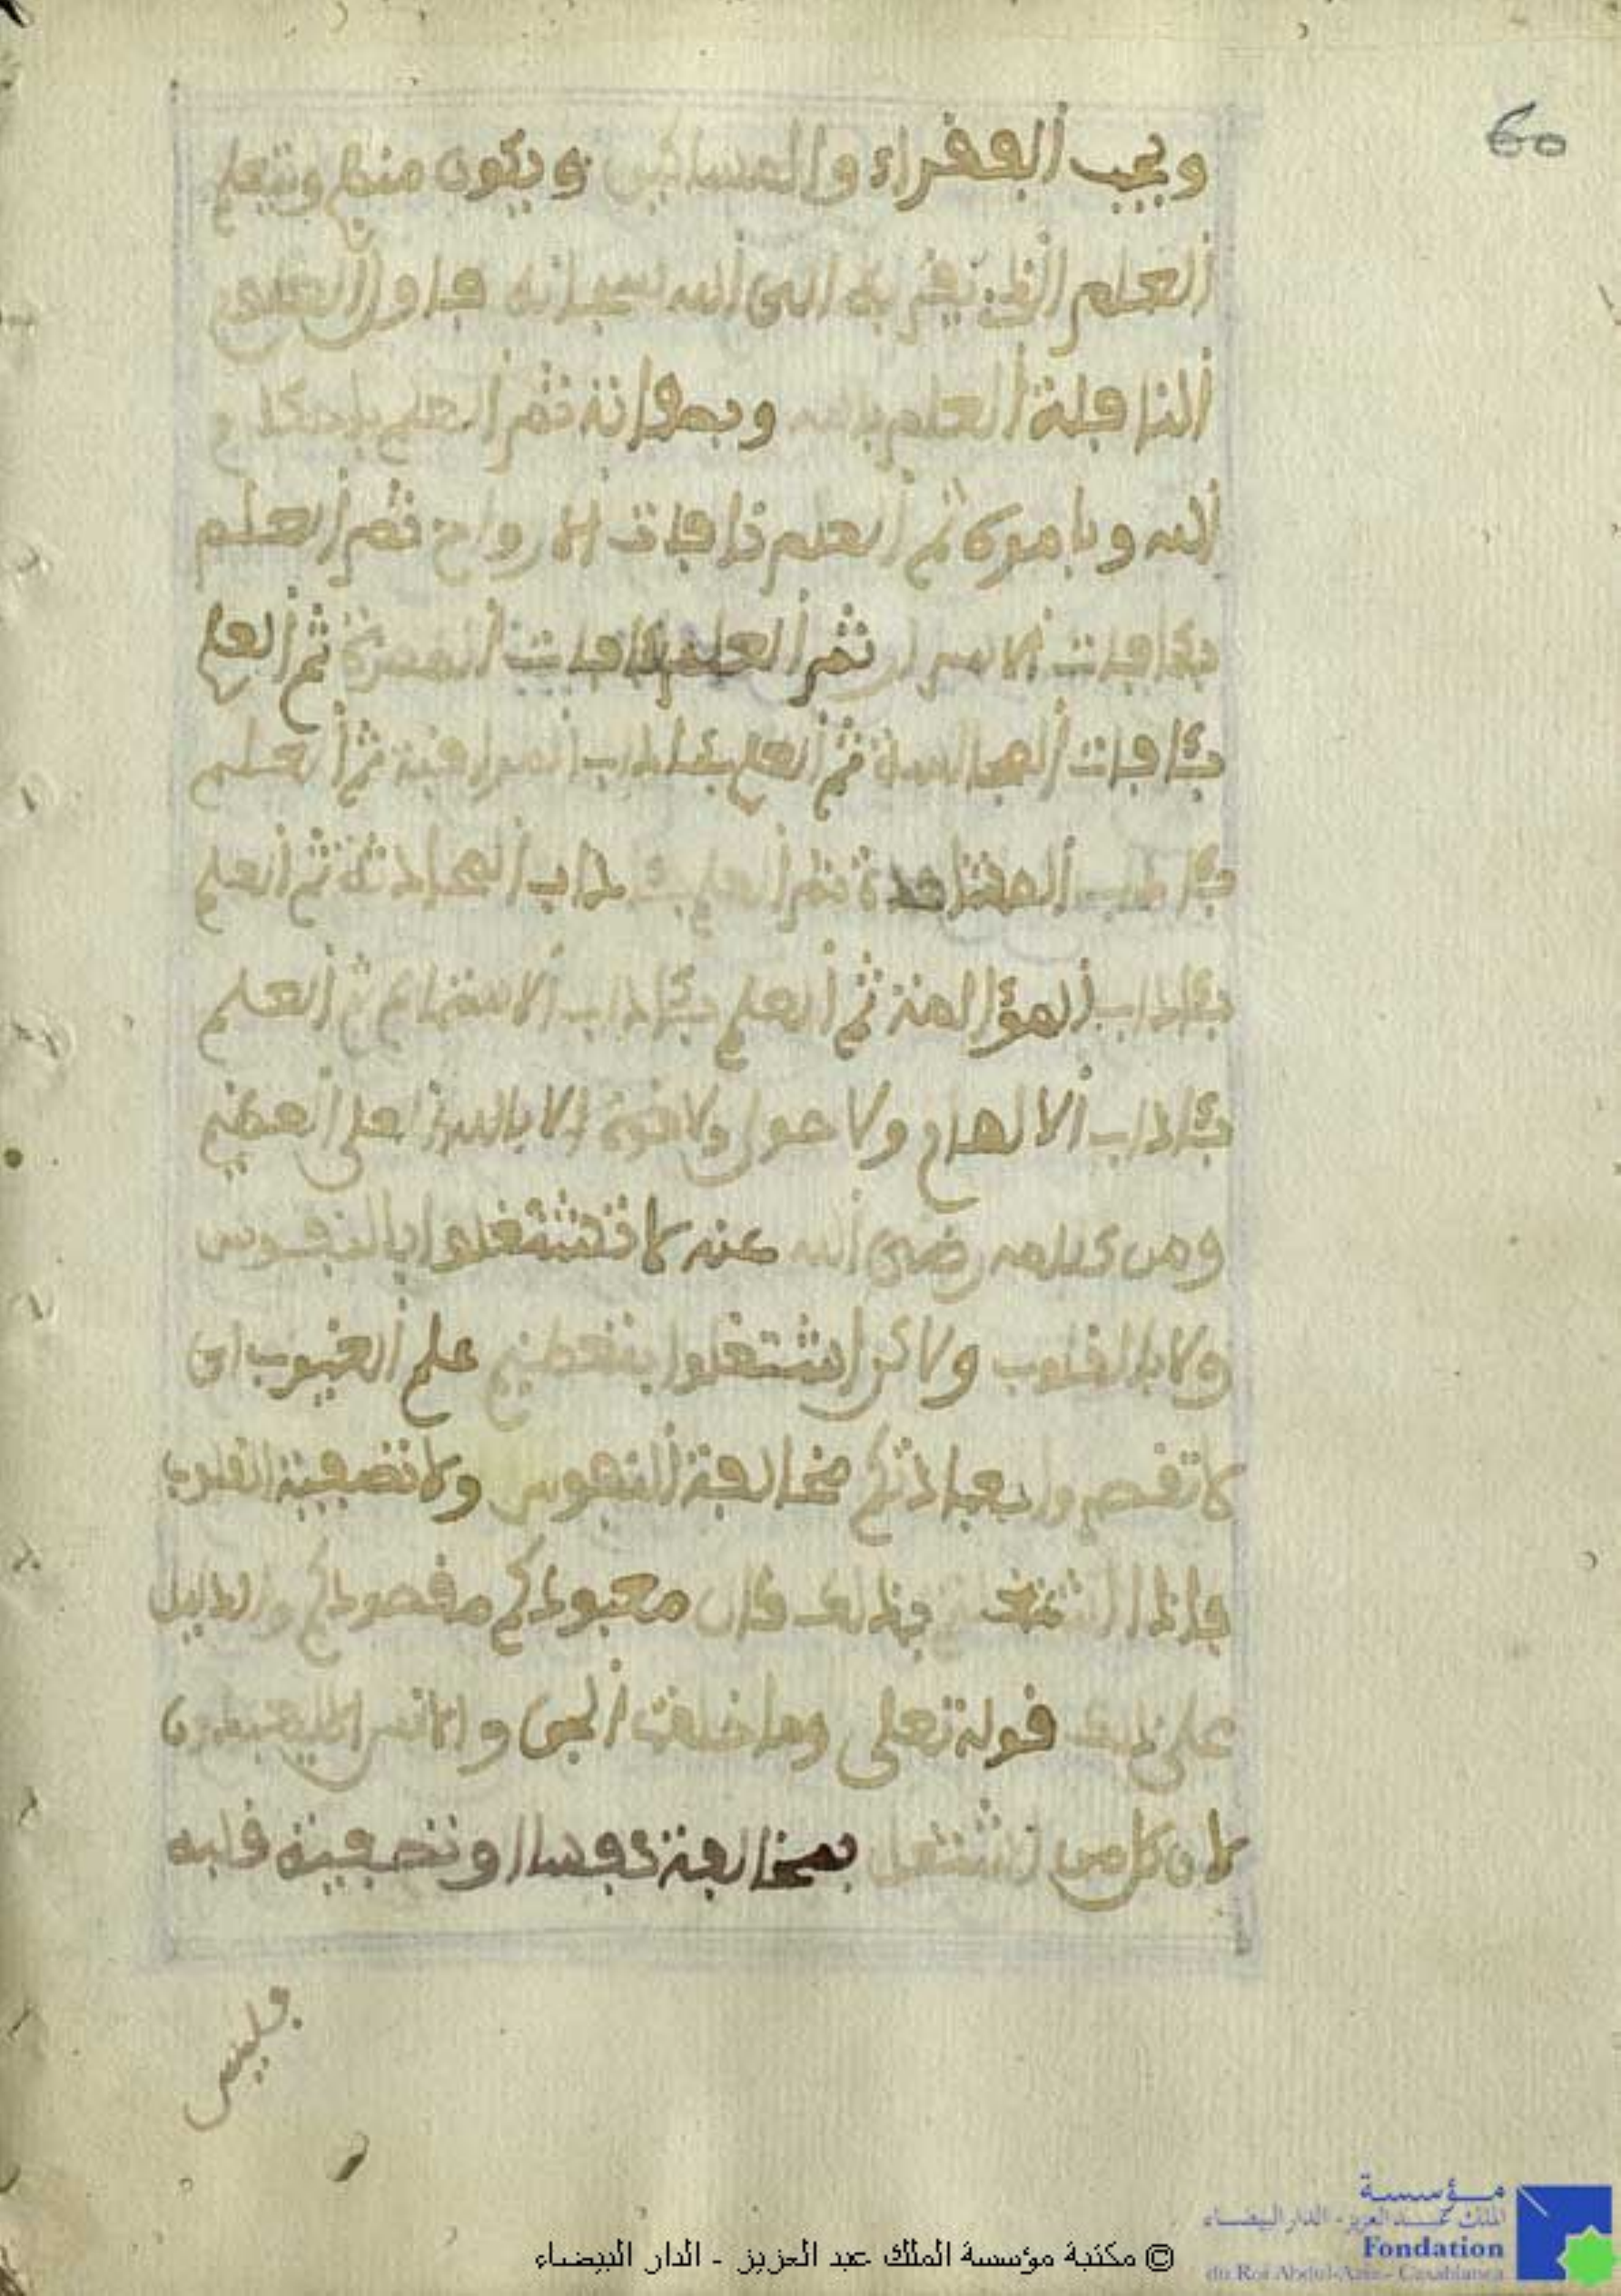 60
ويحب الفقراء والمساكين ويكون منهم ويتعلم
العلم الذي يقربه الى الله سبحانه فاول العلوم
النافلة العلم بالله وبصفاته ثم العلم باحكام
الله وبامره ثم العلم بئافات الارواح ثم العلم
بئافات الاسرار ثم العلم بئافات الحضرة ثم العلم
بئافات المجالسة ثم العلم بئاداب المراقبة ثم العلم
بئاداب المشاهدة ثم العلم بئاداب المحادثة ثم العلم
بئاداب المؤالفة ثم العلم بئاداب الاستماع ثم العلم
بئاداب الالهام ولا حول ولا قوة الا بالله العلي العظيم
ومن كلامه رضي الله عنه لا تشتغلوا بالنفوس
ولا بالقلوب ولاكن اشتغلوا بتعظيم علم الغيوب اي
لا تقصدوا بعبادتكم مخالفة النفوس ولا تصفية القلوب
فاذا اشتغلتم بذلك كان معبودكم مقصودكم والدليل
على ذلك قوله تعلى وما خلقت الجن والانس الا ليعبدون
لان كل من اشتغل بمخالفة نفسه او تصفية قلبه
فليس
© مكتبة مؤسسة الملك عبد العزيز - الدار البيضاء
مؤسسة
الملك عبد العزيز - الدار البيضاء
Fondation
du Roi Abdul-Aziz - Casablanca